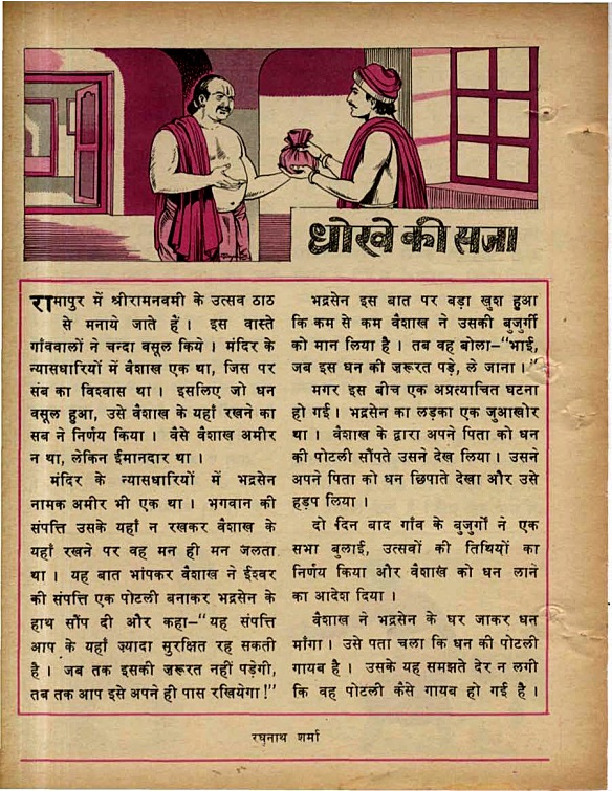 धोखे की सजा
रामापुर में श्रीरामनवमी के उत्सव ठाठ
से मनाये जाते हैं । इस वास्ते
गाँववालों ने चन्दा वसूल किये । मंदिर के
न्यासधारियों में वैशाख एक था, जिस पर
सब का विश्वास था । इसलिए जो धन
वसूल हुआ, उसे वैशाख के यहाँ रखने का
सब ने निर्णय किया । वैसे वैशाख अमीर
न था, लेकिन ईमानदार था ।
मंदिर के न्यासधारियों में भद्रसेन
नामक अमीर भी एक था । भगवान की
संपत्ति उसके यहाँ न रखकर वैशाख के
यहाँ रखने पर वह मन ही मन जलता
था । यह बात भांपकर वैशाख ने ईश्वर
की संपत्ति एक पोटली बनाकर भद्रसेन के
हाथ सौंप दी और कहा-"यह संपत्ति
आप के यहाँ ज़्यादा सुरक्षित रह सकती
है । जब तक इसकी ज़रूरत नहीं पड़ेगी,
तब तक आप इसे अपने ही पास रखियेगा !"
भद्रसेन इस बात पर बड़ा खुश हुआ
कि कम से कम वैशाख ने उसकी बुजुर्गी
को मान लिया है । तब वह बोला-"भाई,
जब इस धन की ज़रूरत पड़े, ले जाना ।"
मगर इस बीच एक अप्रत्याचित घटना
हो गई । भद्रसेन का लड़का एक जुआखोर
था । वैशाख के द्वारा अपने पिता को धन
की पोटली सौंपते उसने देख लिया । उसने
अपने पिता को धन छिपाते देखा और उसे
हड़प लिया ।
दो दिन बाद गाँव के बुजुर्गों ने एक
सभा बुलाई, उत्सवों की तिथियों का
निर्णय किया और वैशाख को धन लाने
का आदेश दिया ।
वैशाख ने भद्रसेन के घर जाकर धन
माँगा । उसे पता चला कि धन की पोटली
गायब है । उसके यह समझते देर न लगी
कि वह पोटली कैसे गायब हो गई है ।
रघुनाथ शर्मा